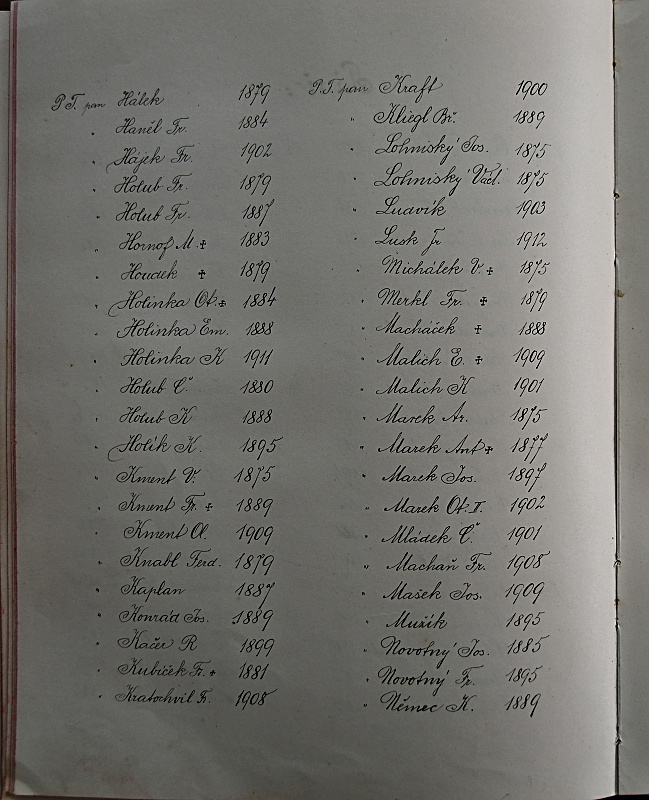 P.T. pan Hálek 1879
" Haněl Fr. 1884
" Hájek Fr. 1902
" Holub Fr. 1879
" Holub Fr. 1887
" Hornof M. ✠ 1883
" Houdek ✠ 1879
" Holinka Ot. ✠ 1884
" Holinka Em. 1888
" Holinka K 1911
" Holub Č. 1880
" Holub K 1888
" Holík K. 1895
" Kment V. 1875
" Kment Fr. ✠ 1889
" Kment Ol. 1909
" Knabl Ferd. 1879
" Kaplan 1887
" Konrád Jos. 1889
" Kačer R 1899
" Kubíček Fr. ✠ 1881
" Kratochvíl Fr. 1908
P.T. pan Kraft 1900
" Kliegl Bř. 1889
" Lohniský Jos. 1875
" Lohniský Václ. 1875
" Ludvík 1903
" Lusk Jr 1912
" Michálek V. ✠ 1875
" Merkl Fr. ✠ 1879
" Macháček ✠ 1888
" Malich E. ✠ 1909
" Malich K 1901
" Marek Ar. 1875
" Marek Ant ✠ 1877
" Marek Jos. 1897
" Marek Ot. II. 1902
" Mládek Č 1901
" Machaň Fr. 1908
" Mašek Jos. 1909
" Mužík 1895
" Novotný Jos. 1885
" Novotný Fr. 1895
" Němec K. 1889